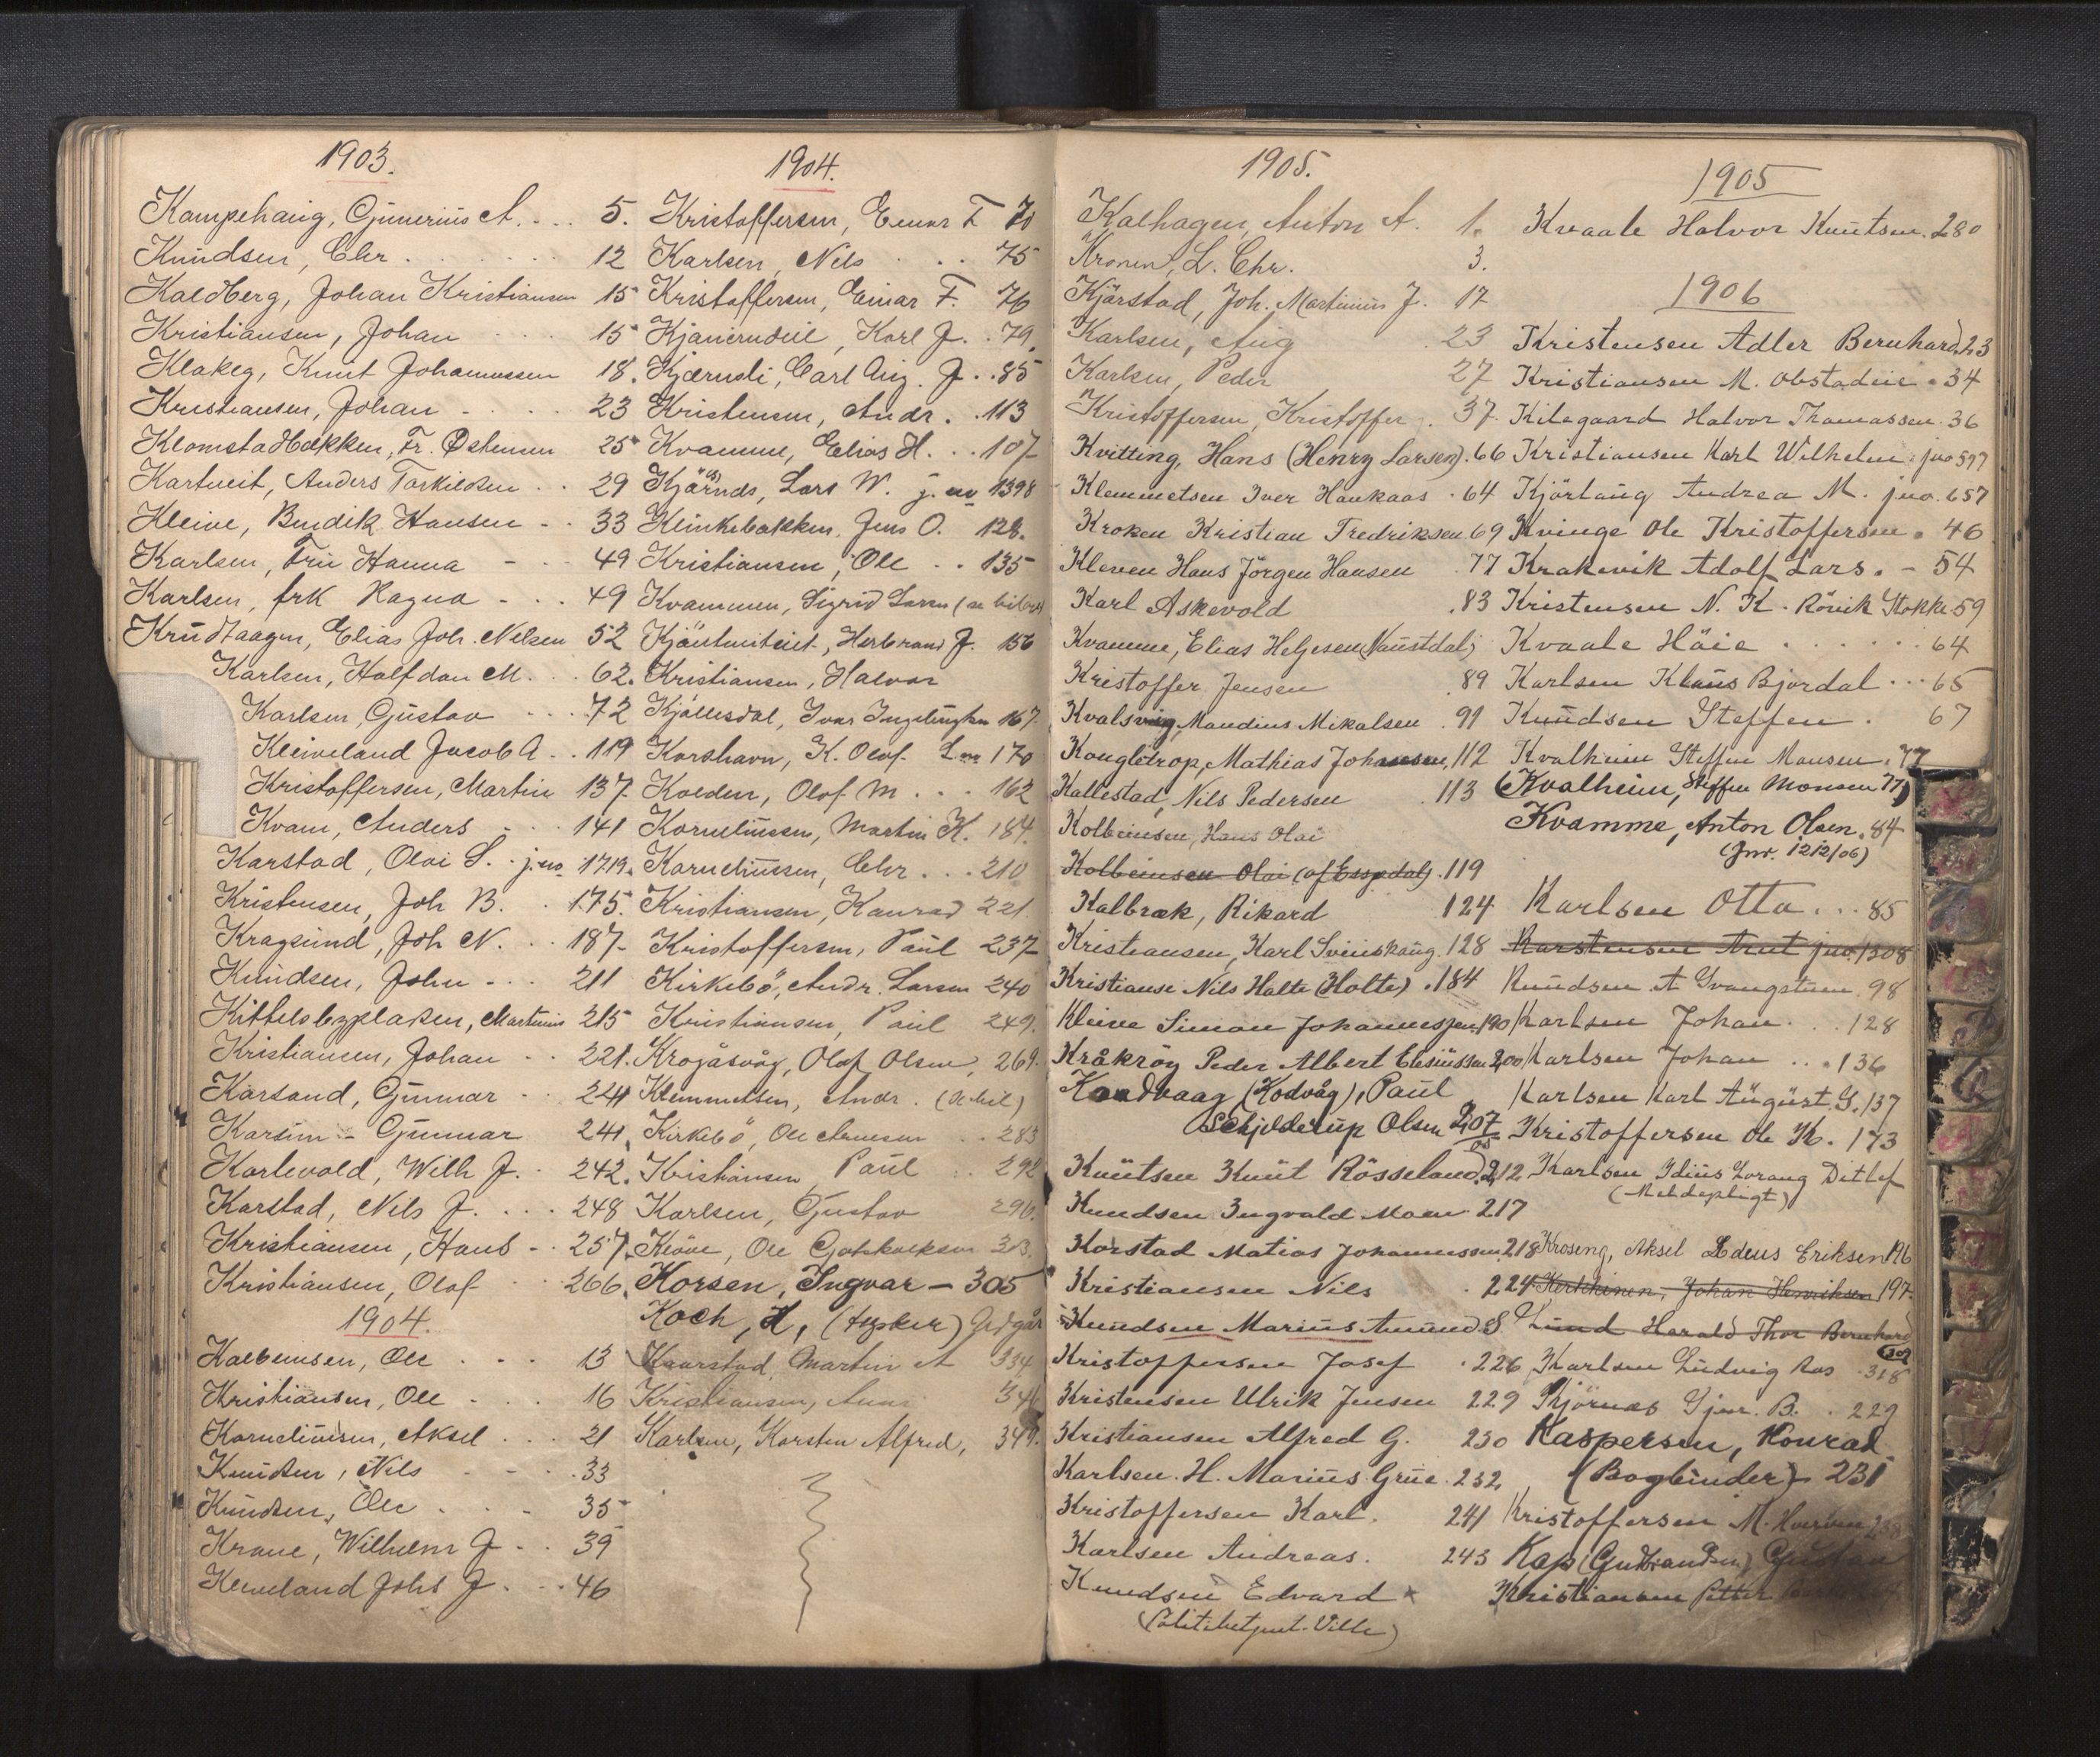 1903.
Kampehaug, Gunerius A. . . . 5.
Knudsen, Chr . . . . . . 12
Kaldberg, Johan Kristiansen 15
Kristiansen, Johan . . . 15
Klakeg, Knut Johannessen 18.
Kristiansen, Johan - . . . 23
Klomstadbakken, Fr. Østensen 25
Kartveit, Anders Torkildsen . . 29
Kleive, Bendik Hansen - . 33
Karlsen, Fru Hanna - . . 49
Karlsen, frk Ragna - . . 49
Elias Joh. Nelsen 52
Karlsen, Halfdan M. . . 62.
Karlsen, Gustav . . . 72
Kleiveland Jacob A . . 119
Kristoffersen, Martin 137
Kvam, Anders - . . 141
Karstad, Olai S. . j.no 1719.
Kristensen, Joh B. . 175.
Kragsund, Joh N. . . 187-
Knudsen, John - . . 211
Martinius 215
Kristiansen, Johan . . 221.
Karsand, Gunnar . . 241
Gunnar 241.
Karlevold, Wilh J. . 242.
Karstad, Nils J. . . . 248
Kristiansen, Hans - . 257.
Kristiansen, Olaf . . 266.
1904.
Kolbeinsen, Ole . . . 13
Kristiansen, Ole . . . 16
Korneliussen, Aksel . . . 21
Knudsen, Nils - . . . 33
Knudsen, Ole . . - 35
Krane, Wilhelm J - . . 39
Kleiveland Johs J. . . . 46
1904.
Kristoffersen, Einar F 70
Karlsen, Nils . . . 75
Kristoffersen, Einar F. 76
Karl J. . 79.
Kjærnsli, Carl Aug. J. . . 85
Kristensen, Andr. . . 113
Kvamme, Elias H. . . . 107
Lars W. j. no 1398
Klinkebakken, Jens O. 128.
Kristiansen, Ole . . 135
Kvammen, Sigrid Larsen
Herbrand J. 156
Kristiansen, Halvor
Kjøllesdal, Ivar 167.
Korshavn, K. Olaf. 170
Kolden, Olaf M . . . 162
Korneliussen, Martin K. 184.
Korneliussen, Chr . . . 210
Kristiansen, Konrad 221
Kristoffersen, Paul 237
Kirkebö, Andr. Larsen 240
Kristiansen, Paul 249.
Krogåsvåg, Olaf Olsen, 269.
Klemmetsen, Andr.
Kirkebö, Ole Arnesen . . 283
Kristiansen Paul . . 292
Karlsen, Gustav 296.
Kløve, Ole
Korsen, Ingvar - 305
Koch, H,
Kaarstad, Martin A 334
Kristiansen,
Karlsen, Karsten Alfred, 349.
1905.
Kalhagen, Anton A. 1.
Kronen, L. Chr. 3.
Kjärstad, Joh. Martinius J. 17
Karlsen, Aug . 23
Karlsen, Peder 27
Kristoffersen, Kristoffer . 37.
Kvitting, Hans (Henry Larsen). 66
Klemmetsen Iver Haukaas . 64
Kroken Kristian Fredriksen 69
Kleven Hans Jörgen Hansen . 77
Karl Askevold . 83
Kvamme, Elias Helgesen (Naustdal)
Kristoffer Jensen . 89
Kvalsvig, Maudius Mikalsen . 91
Kongletrop, Mathias Johansen, 112
Kallestad, Nils Pedersen . 113
Kolbeinsen, Hans Olai
Kolbeinsen Olai . 119
Kalbræk, Rikard . 124
Kristiansen, Karl 128
Kristianse Nils Halte (Holte) . 184
Kleive Simon Johannesen 190
Kråkröy Peder Albert 200
Kondvaag (Kodvåg), Paul
Schjelderup Olsen 207
Knutsen Knut Rösseland 212
Knudsen Ingvald Moen 217
Korstad Matias Johannessen 218
Kristiansen Nils . 224
Knudsen Marius Amund S.
Kristoffersen Josef . 226
Kristensen Ulrik Jensen 229
Kristiansen Alfred G. 230
Karlsen. H. Marius Grue . 232
Kristoffersen Karl . 241
Karlsen Andreas . 243
Knudsen Edvard x
1905
Kvaale Halvor Knutsen . 280
1906
Kristensen Adler Bernhard 23
Kristiansen M. Obstadeie . 34
Kilegaard Halvor Thomassen . 36
Kristiansen Karl Wilhelm jno 597
Kjörlaug Andrea M. jno. 657
Kvinge Ole Kristoffersen . 46
Krakevik Adolf Lars . - 54
Kristensen N. K. Rövik Stokke 59
Kvaale Häie . . . . . 64
Karlsen Klaus Bjordal . . . 65
Knudsen Steffen . 67
Kvalheim Steffen Monsen . 77
(Kvalheim, Steffen Monsen 77)
Kvamme, Anton Olsen . 84
(Jnr. 1212/06)
Karlsen Otto . . . 85
Karstensen Arnt jno. 1308
Knudsen A 98
Karlsen Johan . . . 128
Karlsen Johan . . . 136
Karlsen Karl August G. 137
Kristoffersen Ole K. . 173
Karlsen Ditlef
(Meldepligt)
Kroseng, Aksel Eriksen 196
Johan Henriksen 197.
Lund Harald Thor Bernhard
Karlsen Ludvig Aas 318
B. . 229
Kaspersen, Konrad
(Bogbinder) - 231
Kristoffersen M.
Kap (Gudbrandsen) Gustav
Kristiansen Petter